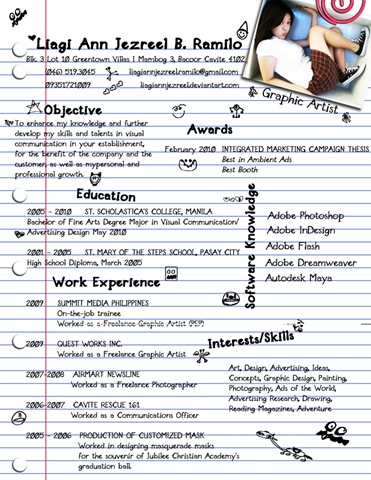 Liagi Ann Jezreel B. Ramilo
Blk. 3 Lot 10 Greentown Villas 1 Mambog 3, Bacoor Cavite 4102
(046) 519.3045 liagiannjezreelramilo@gmail.com
09351721009 liagiannjezreel.deviantart.com
Graphic Artist
Objective
To enhance my knowledge and further
develop my skills and talents in visual
communication in your establishment,
for the benefit of the company and the
customer, as well as mypersonal and
professional growth.
Awards
February 2010 INTEGRATED MARKETING CAMPAIGN THESIS
Best in Ambient Ads
Best Booth
Education
2005 - 2010 ST. SCHOLASTICA'S COLLEGE, MANILA
Bachelor of Fine Arts Degree Major in Visual Communication/
Advertising Design May 2010
2001 - 2005 ST. MARY OF THE STEPS SCHOOL, PASAY CITY
High School Diploma, March 2005
Software Knowledge
Adobe Photoshop
Adobe InDesign
Adobe Flash
Adobe Dreamweaver
Autodesk Maya
Work Experience
2009 SUMMIT MEDIA PHILIPPINES
On-the-job trainee
Worked as a Freelance Graphic Artist
2009 QUEST WORKS INC.
Worked as a Freelance Graphic Artist
2007-2008 AIRMART NEWSLINE
Worked as a Freelance Photographer
2006-2007 CAVITE RESCUE 161
Worked as a Communications Officer
2005 - 2006 PRODUCTION OF CUSTOMIZED MASK
Worked in designing masquerade masks
for the souvenir of Jubilee Christian Academy's
graduation ball.
Interests/Skills
Art, Design, Advertising, Ideas,
Concepts, Graphic Design, Painting,
Photography, Ads of the World,
Advertising Research, Drawing,
Reading Magazines, Adventure